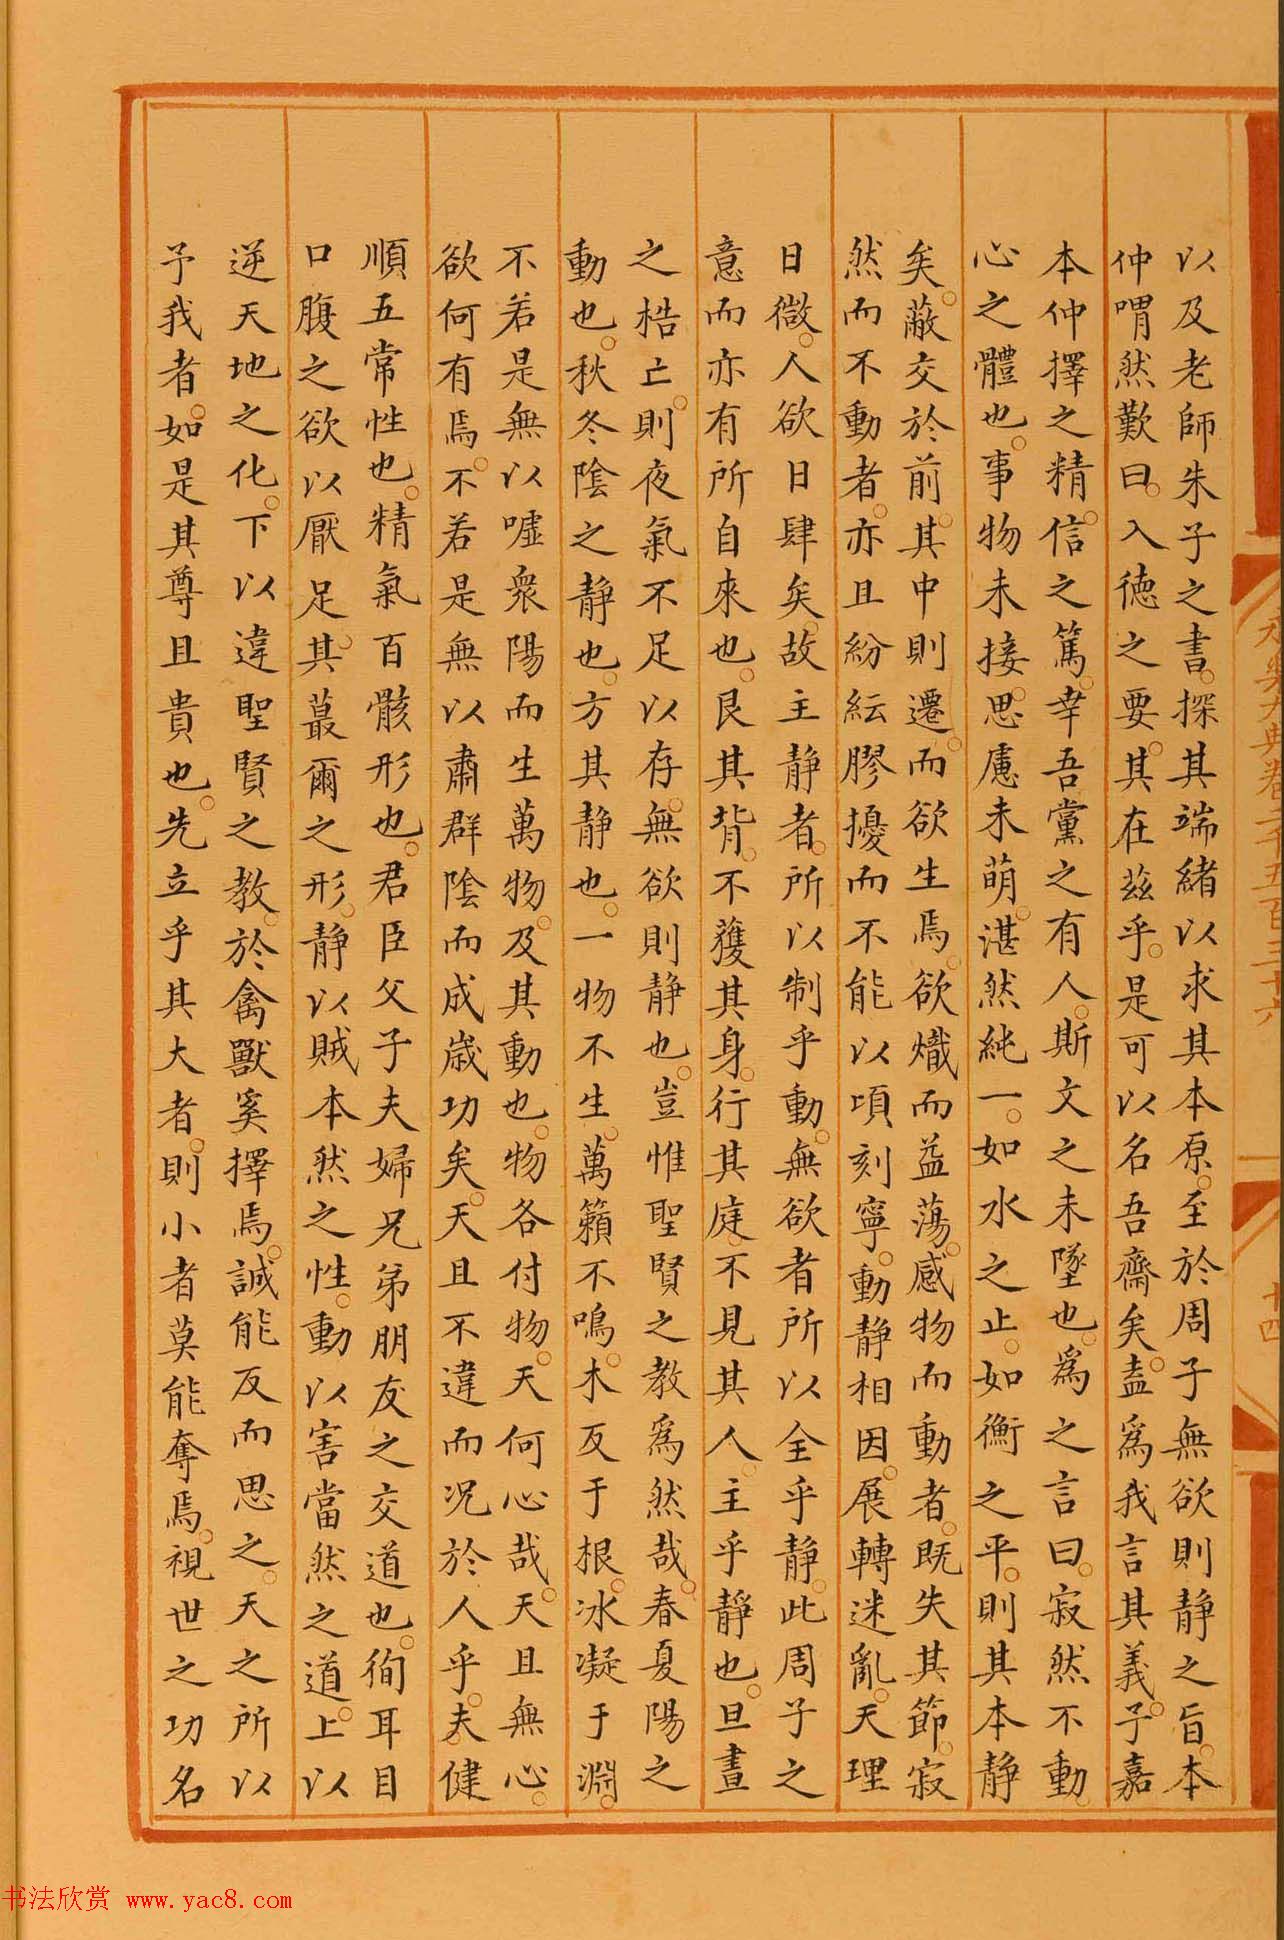 以及老師朱子之書。探其端緒以求其本原。至於周子無欲則静之旨。本
仲喟然歎曰。入德之要。其在茲乎。是可以名吾齋矣。盍爲我言其義。子嘉
本仲擇之精。信之篤。幸吾黨之有人。斯文之未墜也。爲之言曰。寂然不動。
心之體也。事物未接。思慮未萌。湛然純一。如水之止。如衡之平。則其本静
矣。蔽交於前。其中則遷。而欲生焉。欲熾而益蕩。感物而動者。既失其節。寂
然而不動者。亦且紛紜膠擾而不能以頃刻寧。動静相因。展轉迷亂。天理
日微。人欲日肆矣。故主静者。所以制乎動。無欲者所以全乎静。此周子之
意而亦有所自來也。艮其背。不獲其身。行其庭。不見其人。主乎静也。旦晝
之梏亡。則夜氣不足以存。無欲則静也。豈惟聖賢之教爲然哉。春夏陽之
動也。秋冬陰之静也。方其静也。一物不生。萬籟不鳴。木反于根。冰凝于淵。
不若是無以嘘衆陽而生萬物。及其動也。物各付物。天何心哉。天且無心。
欲何有焉。不若是無以肅群陰而成歲功矣。天且不違而况於人乎。夫。健
順五常性也。精氣百骸形也。君臣父子夫婦兄弟朋友之交道也。徇耳目
口腹之欲以厭足。其蕞爾之形。静以賊本然之性。動以害當然之道。上以
逆天地之化。下以違聖賢之教。於禽獸奚擇焉。誠能反而思之。天之所以
予我者。如是其尊且貴也。先立乎其大者。則小者莫能奪焉。視世之功名
永樂大典卷二千五百三十六
十四
书法欣赏 www.yac8.com